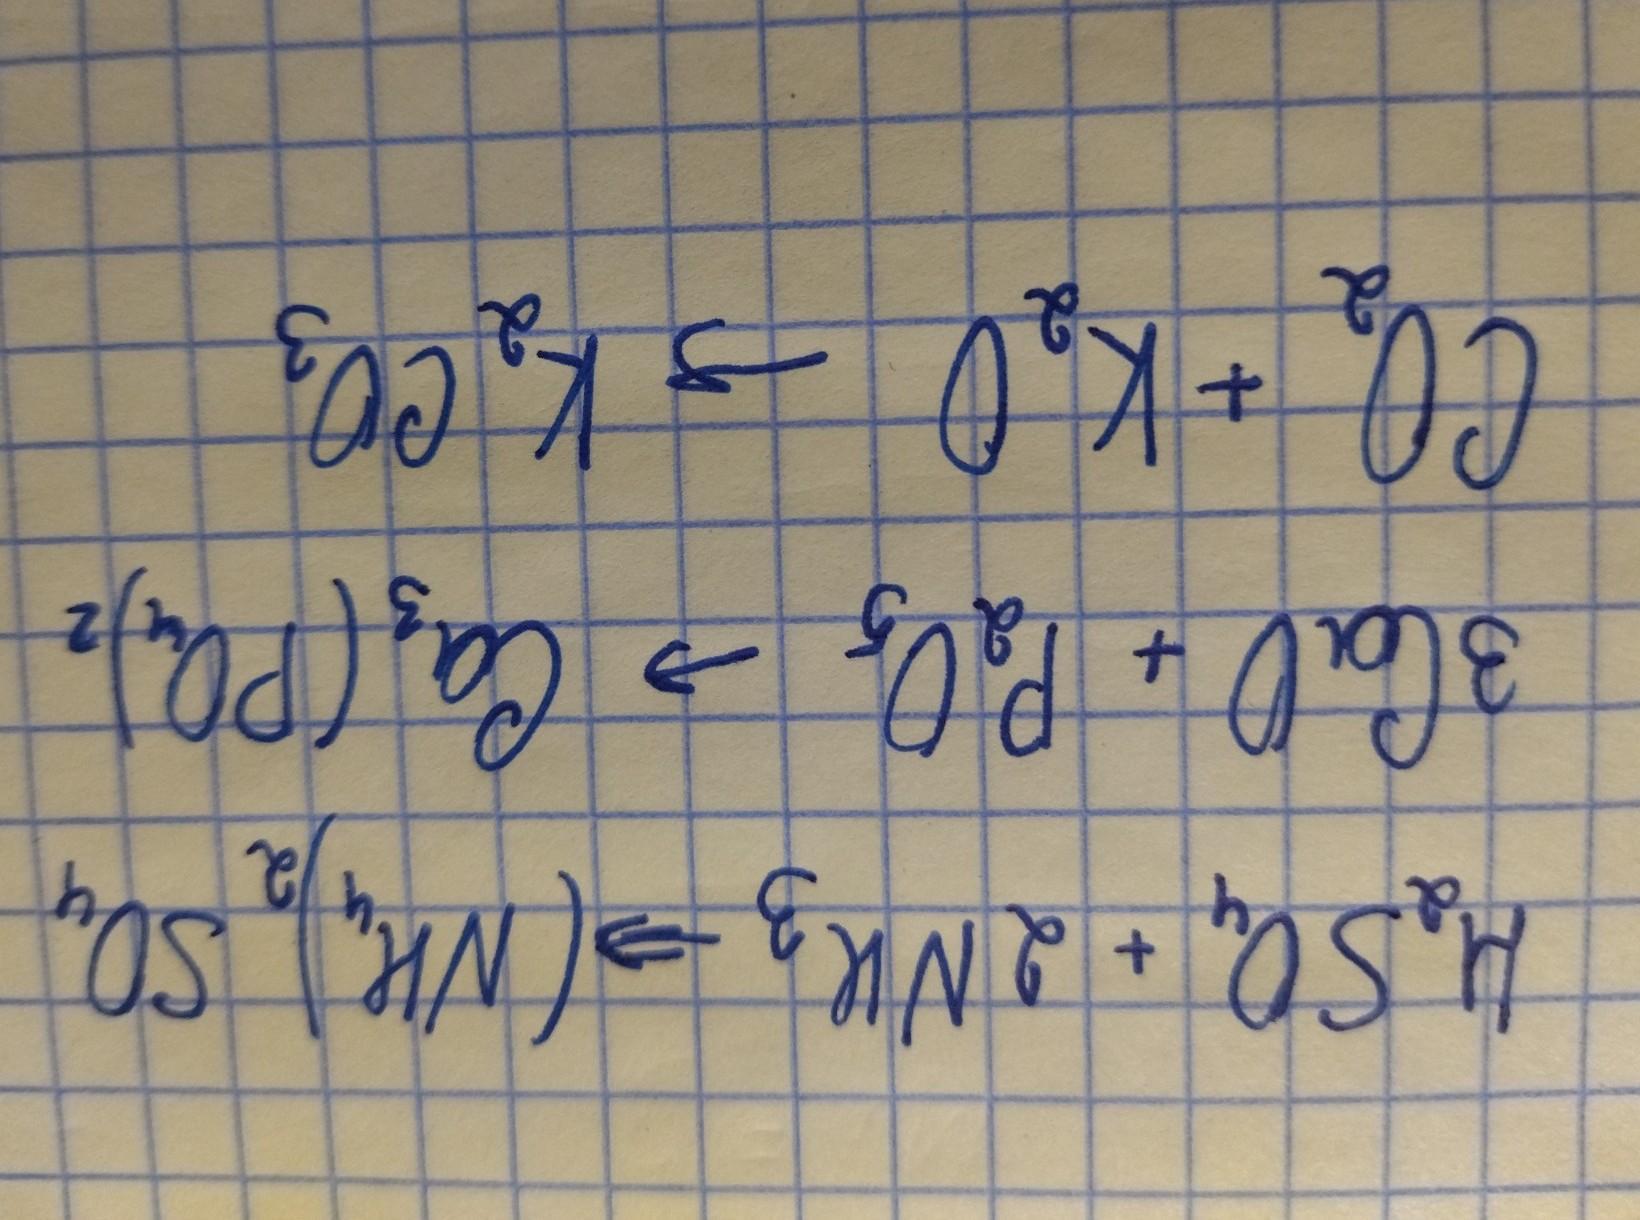 H₂SO₄ + 2NH₃ → (NH₄)₂SO₄
3CaO + P₂O₅ → Ca₃(PO₄)₂
CO₂ + K₂O → K₂CO₃